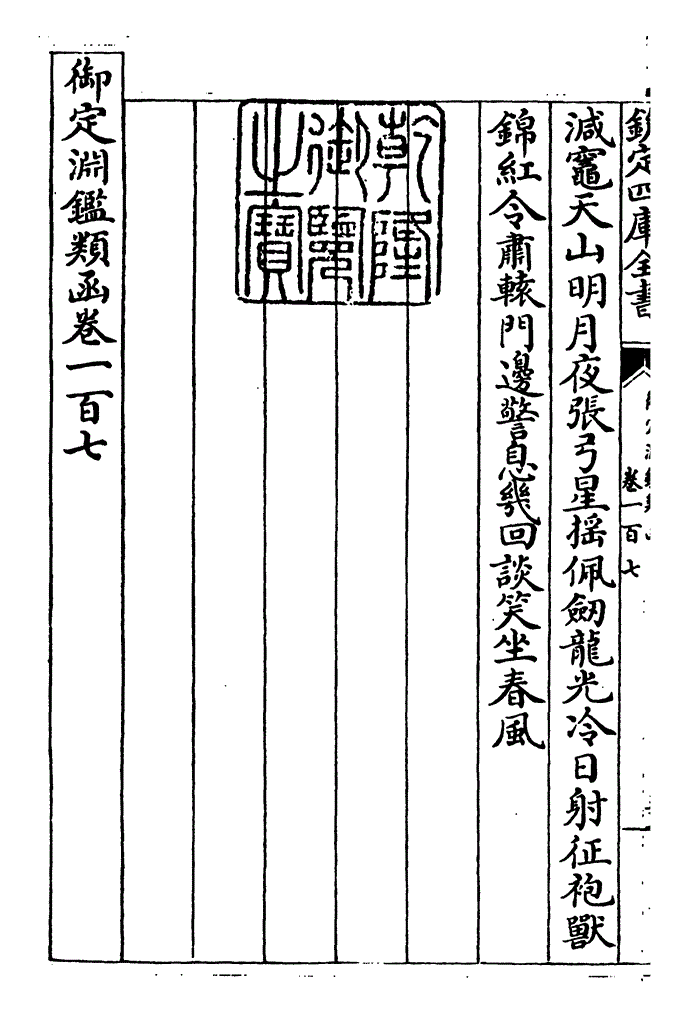 欽定四庫全書
卷一百七
減竈天山明月夜張弓星揺佩劒龍光冷日射征袍獸
錦紅令肅轅門邊警息幾回談笑坐春風
乾隆御覽之寶
御定淵鑑類函卷一百七